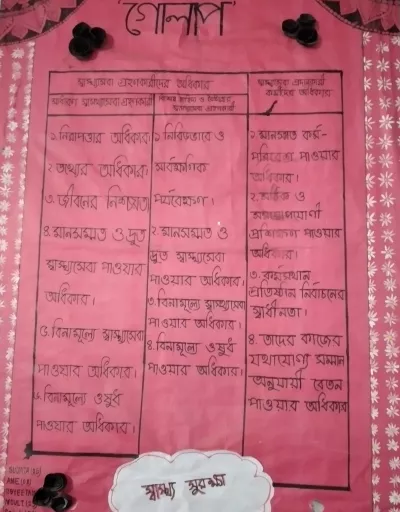 'গোলাপ'
স্বাস্থ্যসেবা গ্রহণকারীদের অধিকার
স্বাস্থ্যসেবা প্রদানকারী
কর্মীদের অধিকার
স্বাস্থ্যসেবা গ্রহণকারী
১. নিরাপত্তার অধিকার
২. তথ্যের অধিকার
৩. জীবনের নিশ্চয়তা
৪. মানসম্মত ও দ্রুত
স্বাস্থ্যসেবা পাওয়ার
অধিকার।
৫. বিনামূল্যে স্বাস্থ্যসেবা
পাওয়ার অধিকার।
৬. বিনামূল্যে ওষুধ
পাওয়ার অধিকার।
১. নিবিড়ভাবে ও
সার্বক্ষণিক
পর্যবেক্ষণ।
২. মানসম্মত ও
দ্রুত স্বাস্থ্যসেবা
পাওয়ার অধিকার।
৩. বিনামূল্যে স্বাস্থ্যসেবা
পাওয়ার অধিকার।
৪. বিনামূল্যে ওষুধ
পাওয়ার অধিকার।
১. মানসম্মত কর্ম-
পরিবেশ পাওয়ার
অধিকার।
২. সঠিক ও
প্রশিক্ষণ পাওয়ার
অধিকার।
৩. কর্মস্থান
প্রতিষ্ঠান নির্বাচনের
স্বাধীনতা।
৪. তাদের কাজের
যথাযোগ্য সম্মান
অনুযায়ী বেতন
পাওয়ার অধিকার
স্বাস্থ্য সুরক্ষা